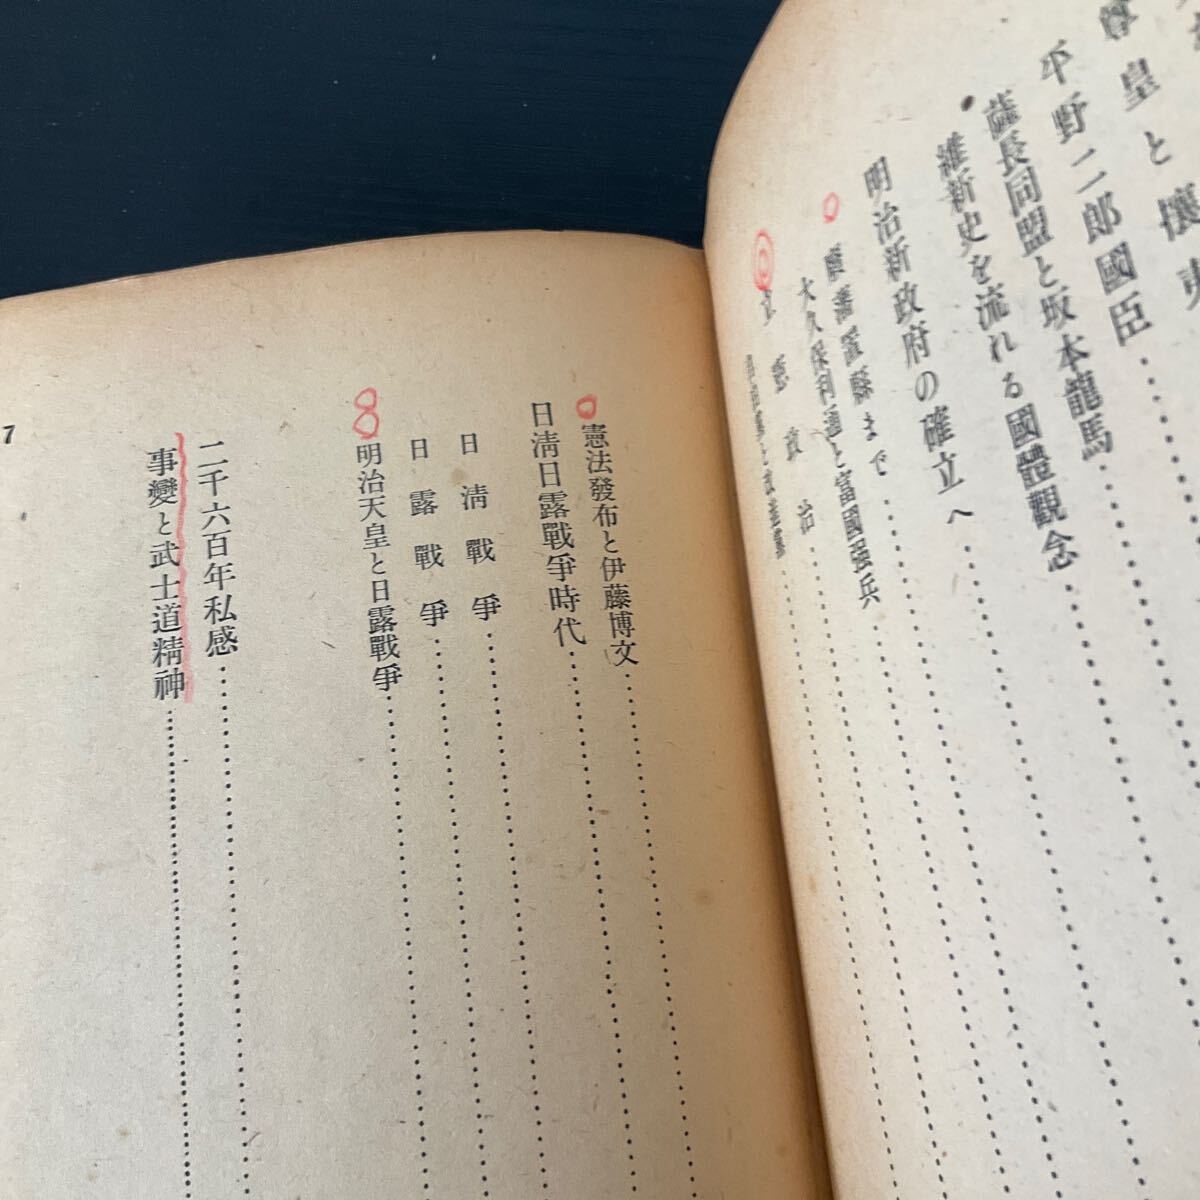 尊皇と攘夷
平野二郎國臣
薩長同盟と坂本龍馬
維新史を流れる國體觀念
明治新政府の確立へ
廢藩置縣まで
大久保利通と富國强兵
立憲政治
憲法發布と伊藤博文
日淸日露戰爭時代
日淸戰爭
日露戰爭
明治天皇と日露戰爭
二千六百年私感
事變と武士道精神
7